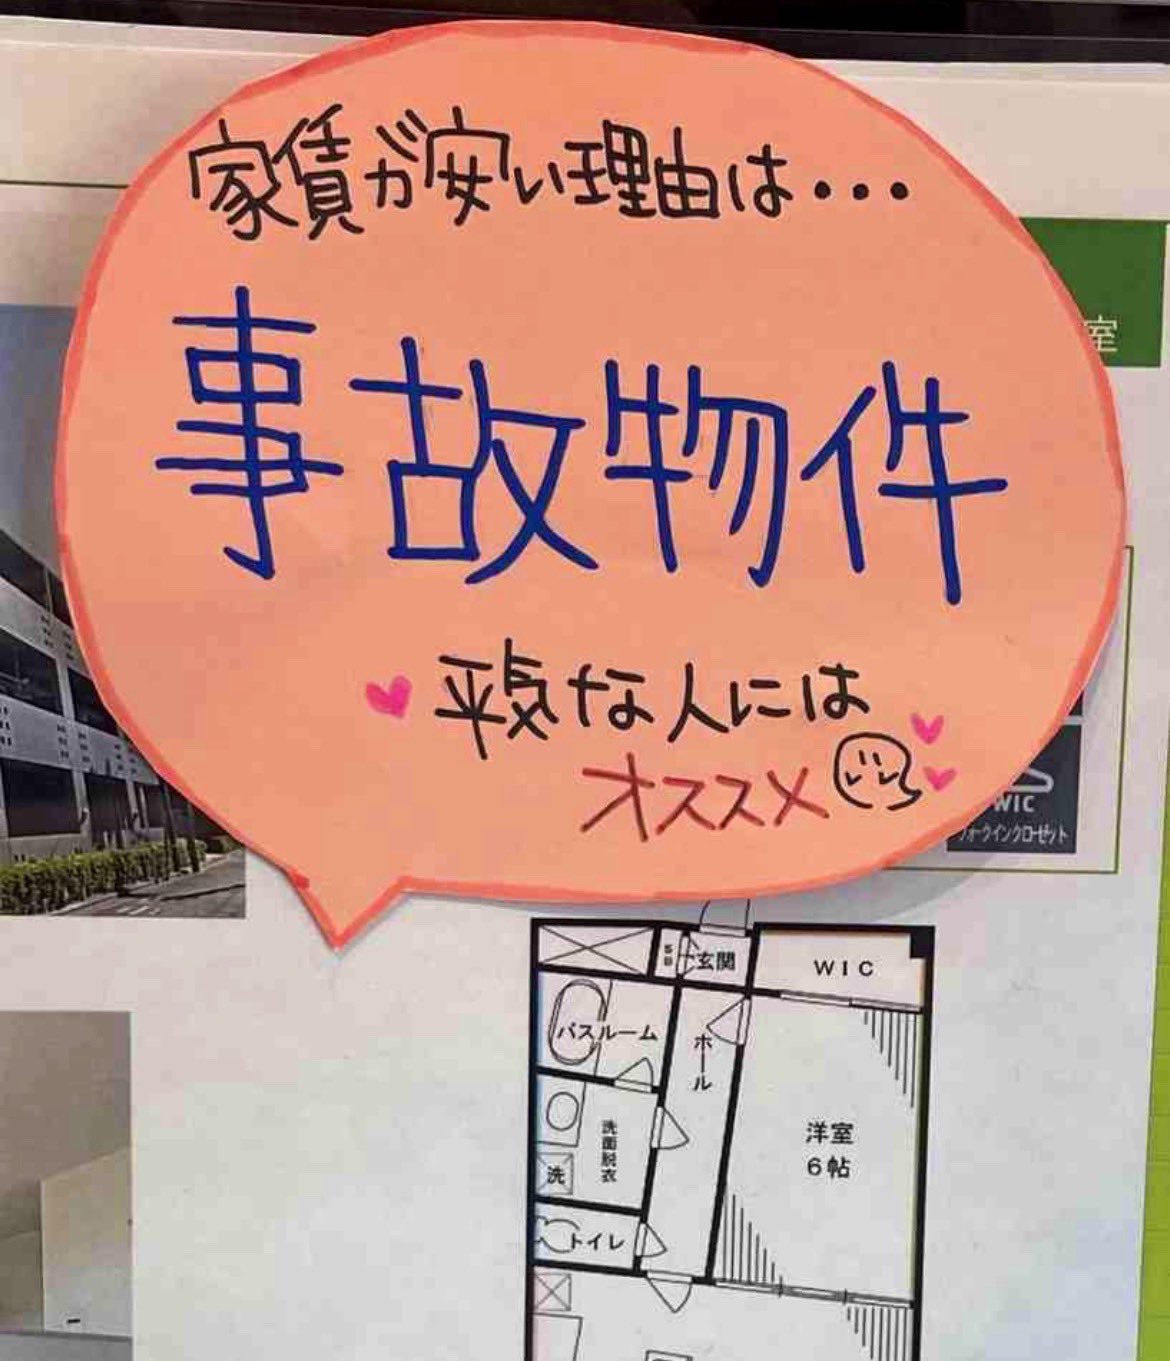 家賃が安い理由は・・・
事故物件
平気な人には
オススメ
室
WIC
ウォークインクローゼット
SB
玄関
WIC
バスルーム
ホール
洗面脱衣
洗
洋室
6帖
トイレ